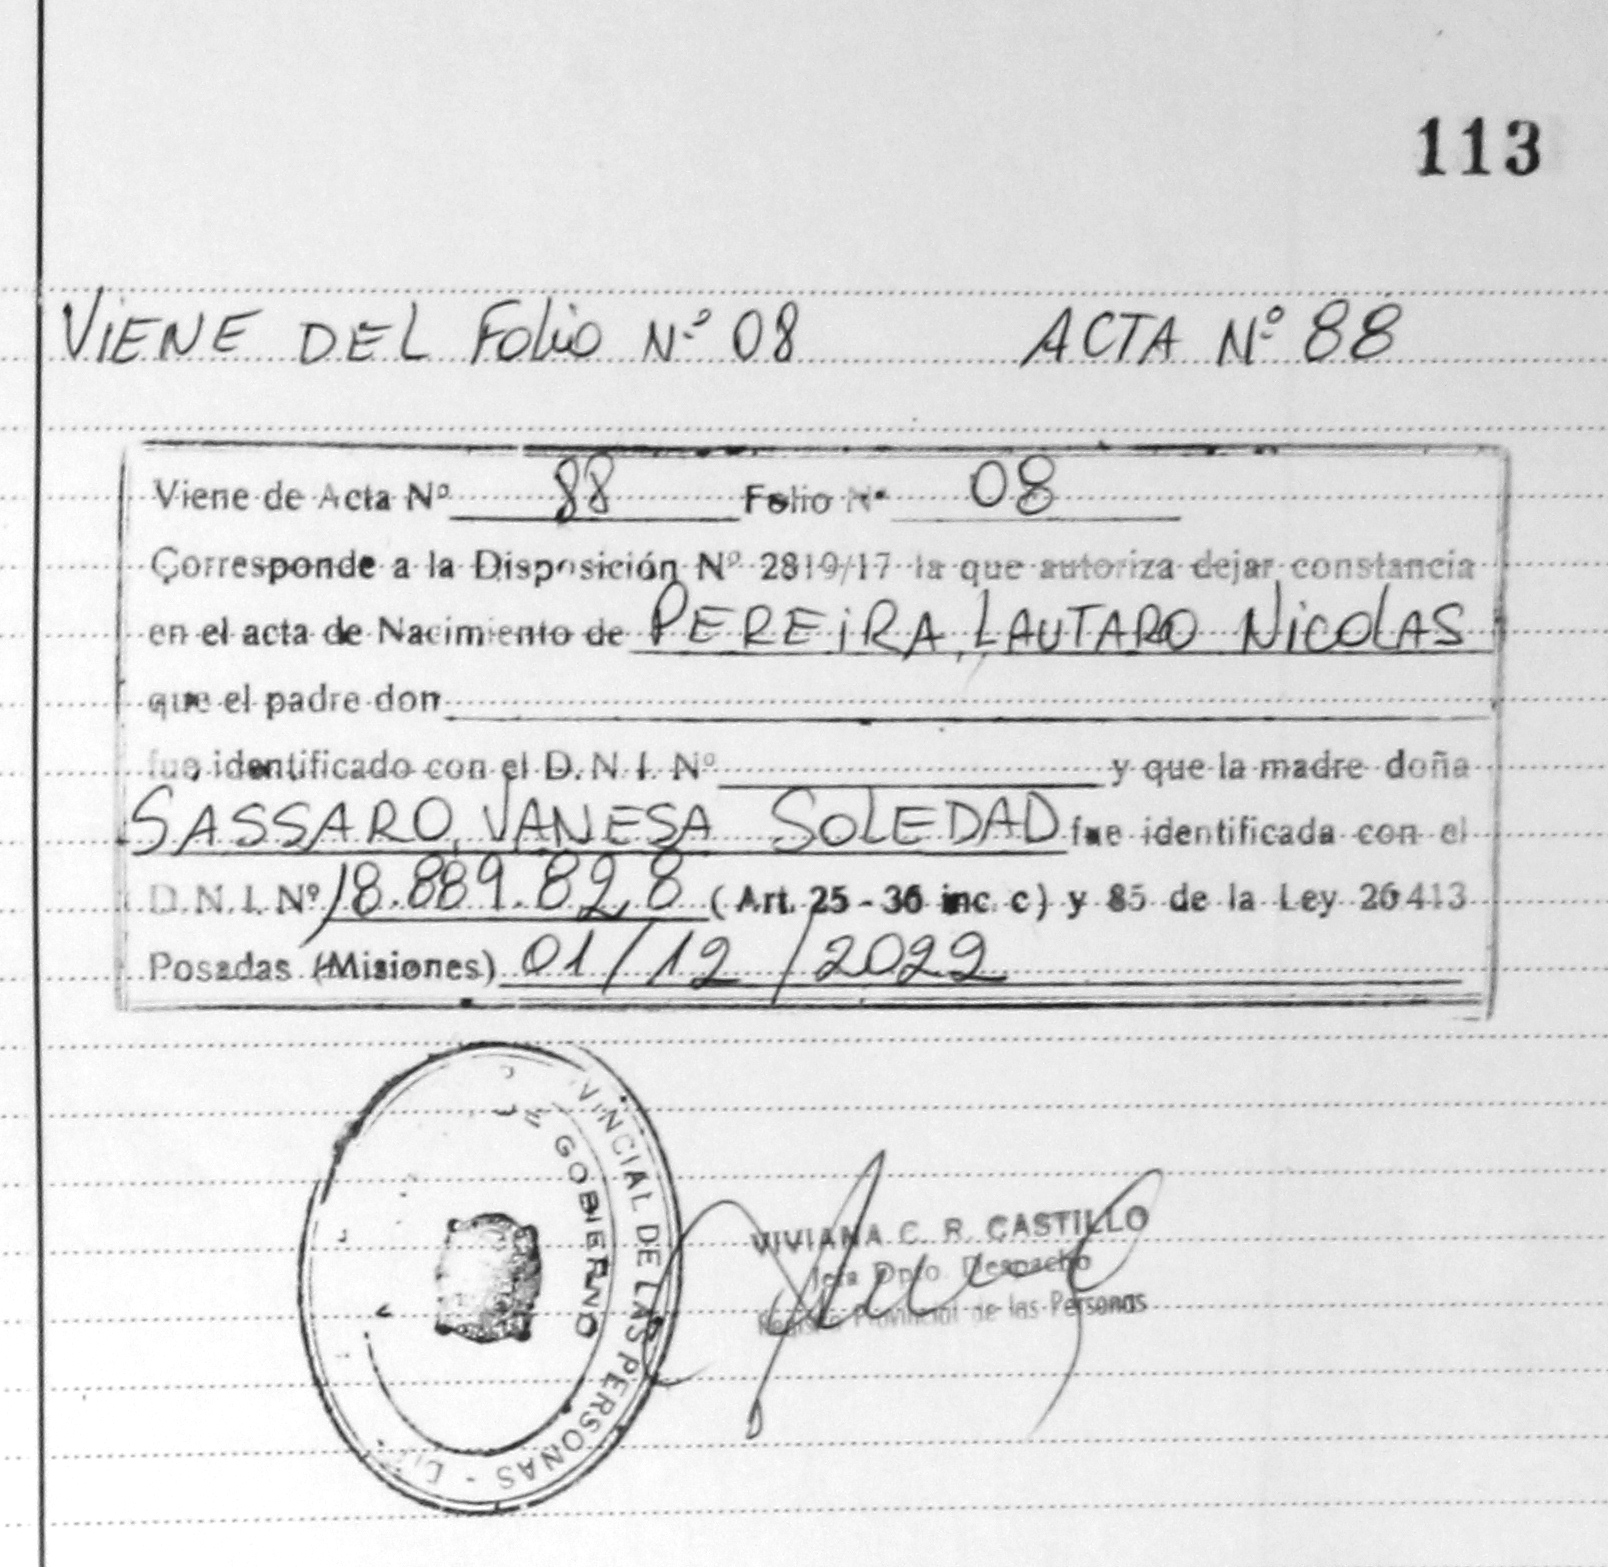 113
VIENE DEL Folio Nº 08 ACTA Nº 88
Viene de Acta Nº 88 Folio Nº 08
Corresponde a la Disposición Nº 2819/17 la que autoriza dejar constancia
en el acta de Nacimiento de PEREIRA, LAUTARO NICOLAS
que el padre don
fue identificado con el D.N.I. Nº y que la madre doña
SASSARO, VANESA SOLEDAD fue identificada con el
D.N.I. Nº 18.889.828 (Art. 25 - 36 inc. c) y 85 de la Ley 26413
Posadas (Misiones) 01/12/2022
VINCIAL DE LAS PERSONAS -
GOBIERNO
VIVIANA C. R. CASTILLO
Jefa Dpto. Despacho
Registro Provincial de las Personas